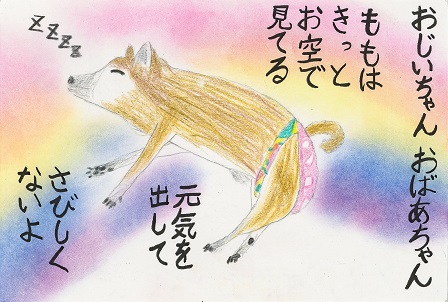 おじいちゃん おばあちゃん
ももは
きっと
お空で
見てる
zzzz
元気を
出して
さびしく
ないよ